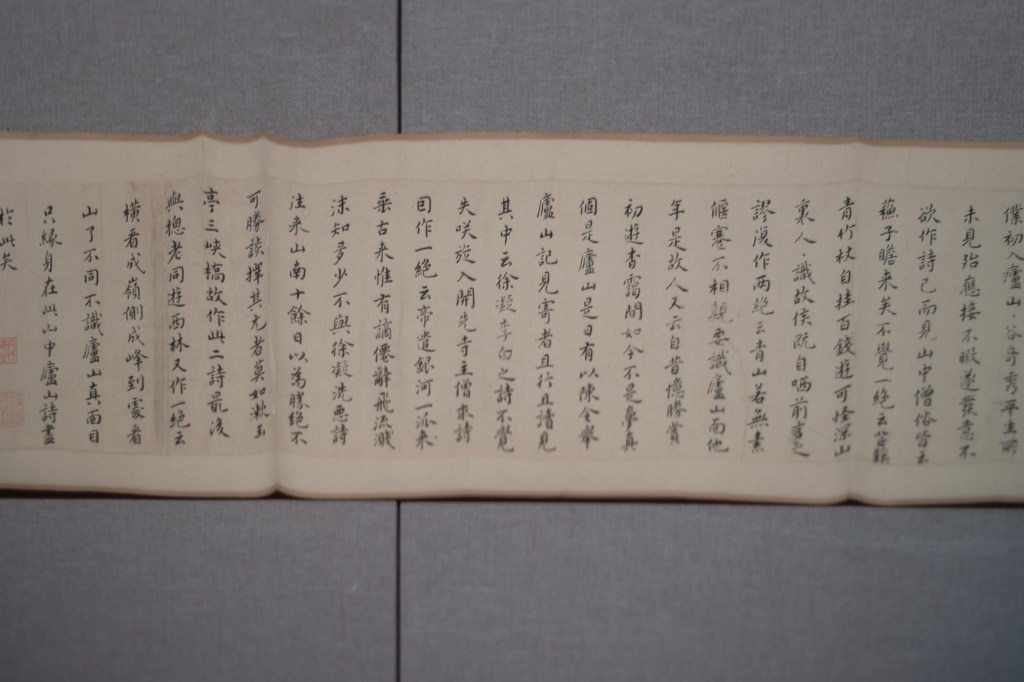 僕初入廬山谷奇秀平生所
未見殆應接不暇遂發意不
欲作詩已而見山中僧俗皆云
蘇子瞻来矣不覺一絕云芒鞵
青竹杖自挂百錢遊可怪深山
裏人識故侯既自哂前言之
謬復作兩絕云青山若無素
偃蹇不相親要識廬山面他
年是故人又云自昔憶勝賞
初遊杳靄間如今不是夢真
個是廬山是日有以陳令舉
廬山記見寄者且行且讀見
其中云徐凝李白之詩不覺
失咲旋入開先寺主僧求詩
因作一絕云帝遣銀河一派来
垂古来惟有謫僊辭飛流濺
沫知多少不與徐凝洗惡詩
往来山南十餘日以為勝絕不
可勝談擇其尤者莫如漱玉
亭三峽橋故作此二詩最後
與摠老同遊西林又作一絕云
橫看成嶺側成峰到處看
山了不同不識廬山真面目
只緣身在此山中廬山詩盡
於此矣